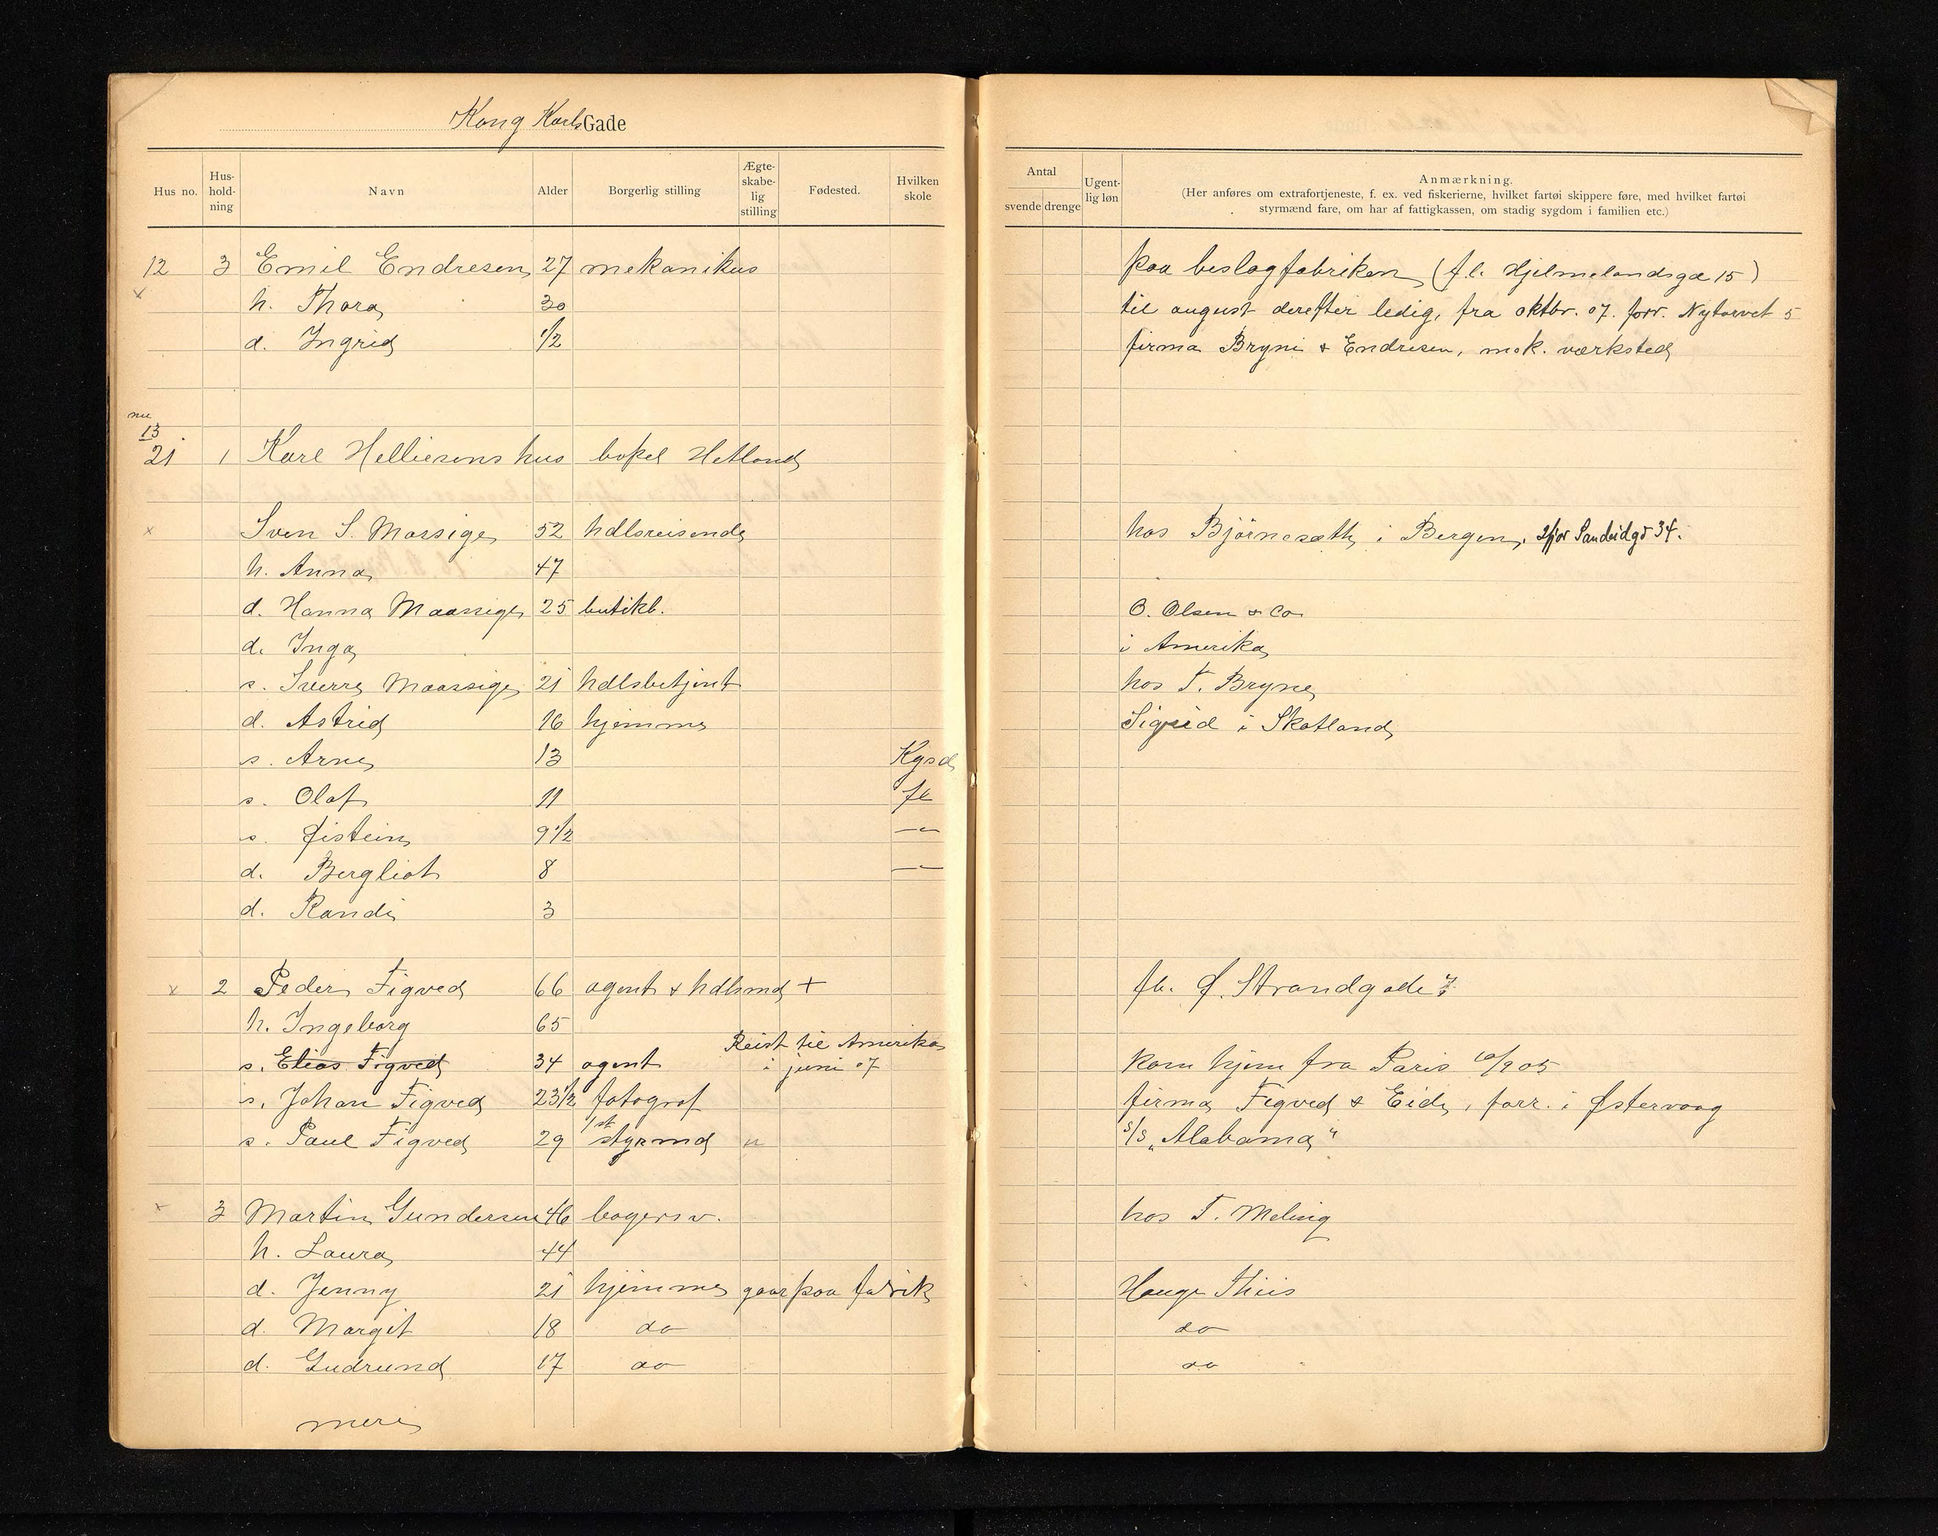 Kong Karls Gade
Hus no. Hus-hold-ning Navn Alder Borgerlig stilling Ægte-skabe-lig stilling Fødested. Hvilken skole
Antal svende drenge Ugent-lig løn Anmærkning.
(Her anføres om extrafortjeneste, f. ex. ved fiskerierne, hvilket fartøi skippere føre, med hvilket fartøi
styrmænd fare, om har af fattigkassen, om stadig sygdom i familien etc.)
12 3 Emil Endresen 27 mekanikus paa beslagfabriken (f.l. Hjelmelandsgd 15)
x h. Thora 30 til august derefter ledig, fra oktbr. 07. forr. Nytorvet 5
d. Ingrid 1/2 firma Bryne & Endresen, mek. værksted
nu
13
21 1 Karl Helliesens hus bopel Hetland
x Sven S. Massige 52 hdlsreisende hos Björnesæth i Bergen,
h. Anna 47
d. Hanna Maassige 25 butikb. O. Olsen & Co
d. Inga i Amerika
s. Sverre Maassige 21 hdlsbetjent hos T. Bryne
d. Astrid 16 hjemme Sigrid i Skotland
s. Arne 13 Kgsd
s. Olaf 11 fl
s. Øistein 9 1/2 —"—
d. Bergliot 8 —"—
d. Randi 3
x 2 Peder Tigved 66 agent & hdlsmd + fb. Ø. Strandgade
h. Ingeborg 65
s. Elias Tigved 34 agent Reist til Amerika i juni 07 kom hjem fra Paris 10/9 05
s. Johan Tigved 23 1/2 fotograf firma Tigved & Eide, forr. i Østervaag
s. Paul Tigved 29 1st styrmd u s/s "Alabama"
x 3 Martin Gundersen 46 bogersv. hos T. Meling
h. Laura 44
d. Jenny 21 hjemme gaar paa fabrik Hauge Thiis
d. Margit 18 do do
d. Gudrund 17 do do
mere